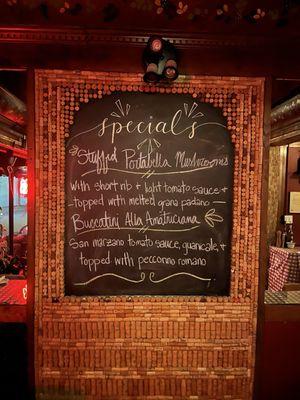 specials
Stuffed Portabella Mushrooms
with short rib + light tomato sauce +
topped with melted grana padano
Buccatini Alla Amatriciana
San marzano tomato sauce, guancale, +
topped with pecconno romano